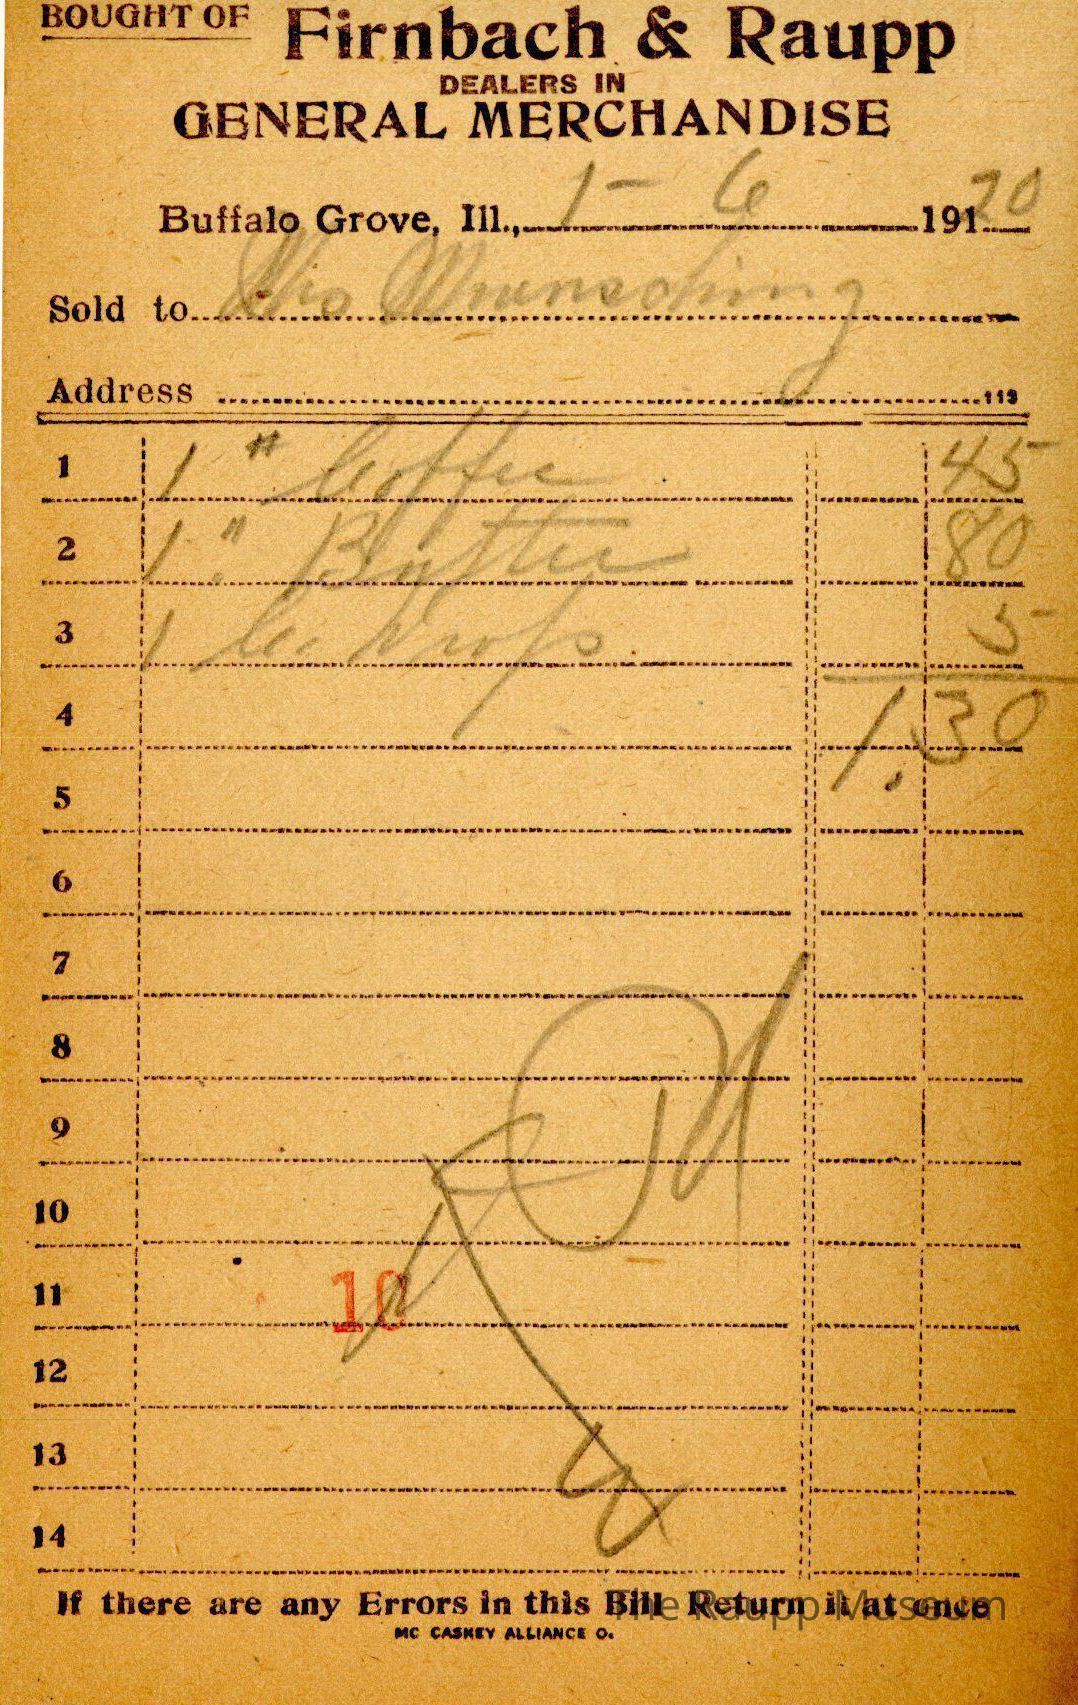 BOUGHT OF Firnbach & Raupp
DEALERS IN
GENERAL MERCHANDISE
Buffalo Grove, Ill., 1 - 6 191 20
Sold to
Address 113
1 1 " Coffee 45
2 1 " Butter 80
3 1 C. Drops 5
4 1.30
5
6
7
8
9
10
11 10
12
13
14
If there are any Errors in this Bill Return it at once
The Raupp Museum
MC CASKEY ALLIANCE O.